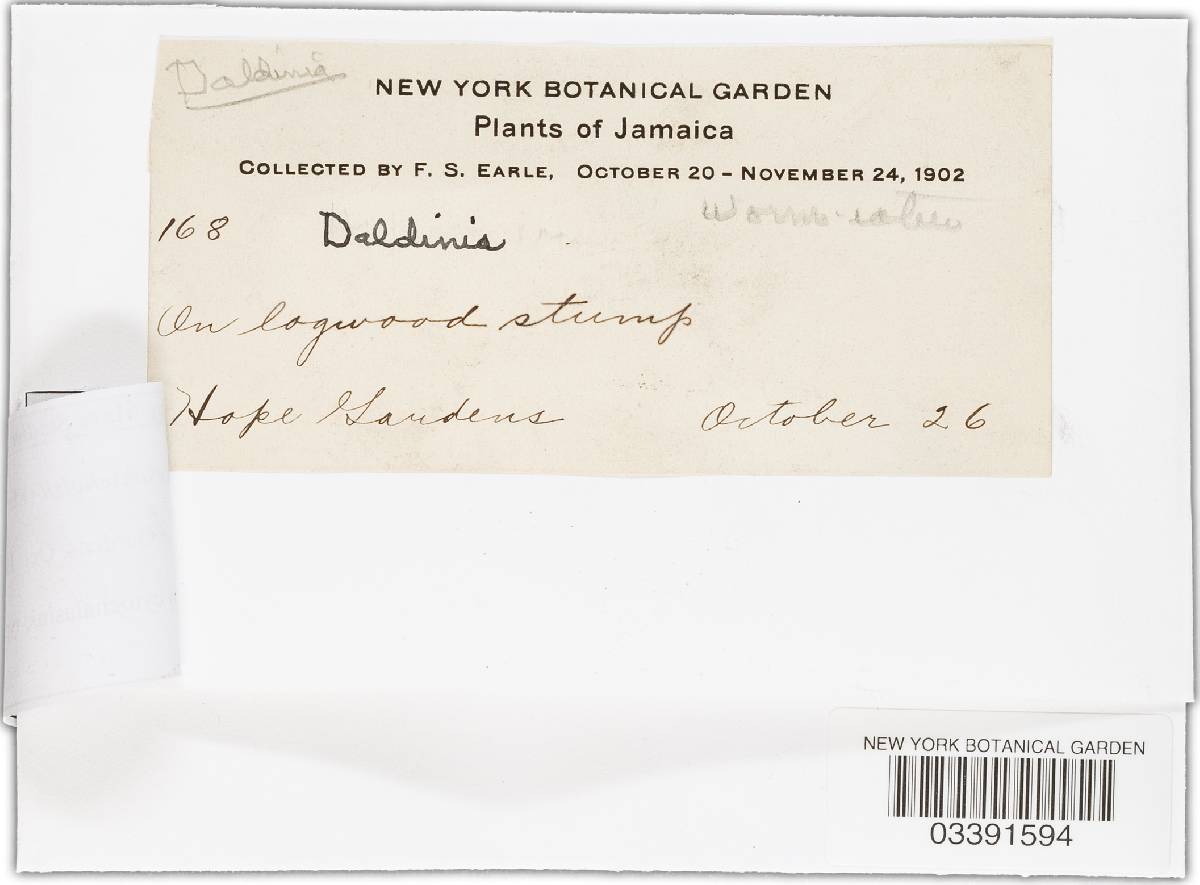 Daldinia
NEW YORK BOTANICAL GARDEN
Plants of Jamaica
COLLECTED BY F. S. EARLE, OCTOBER 20 – NOVEMBER 24, 1902
Worm-eaten
168 Daldinia
On logwood stump
Hope Gardens October 26
NEW YORK BOTANICAL GARDEN
03391594